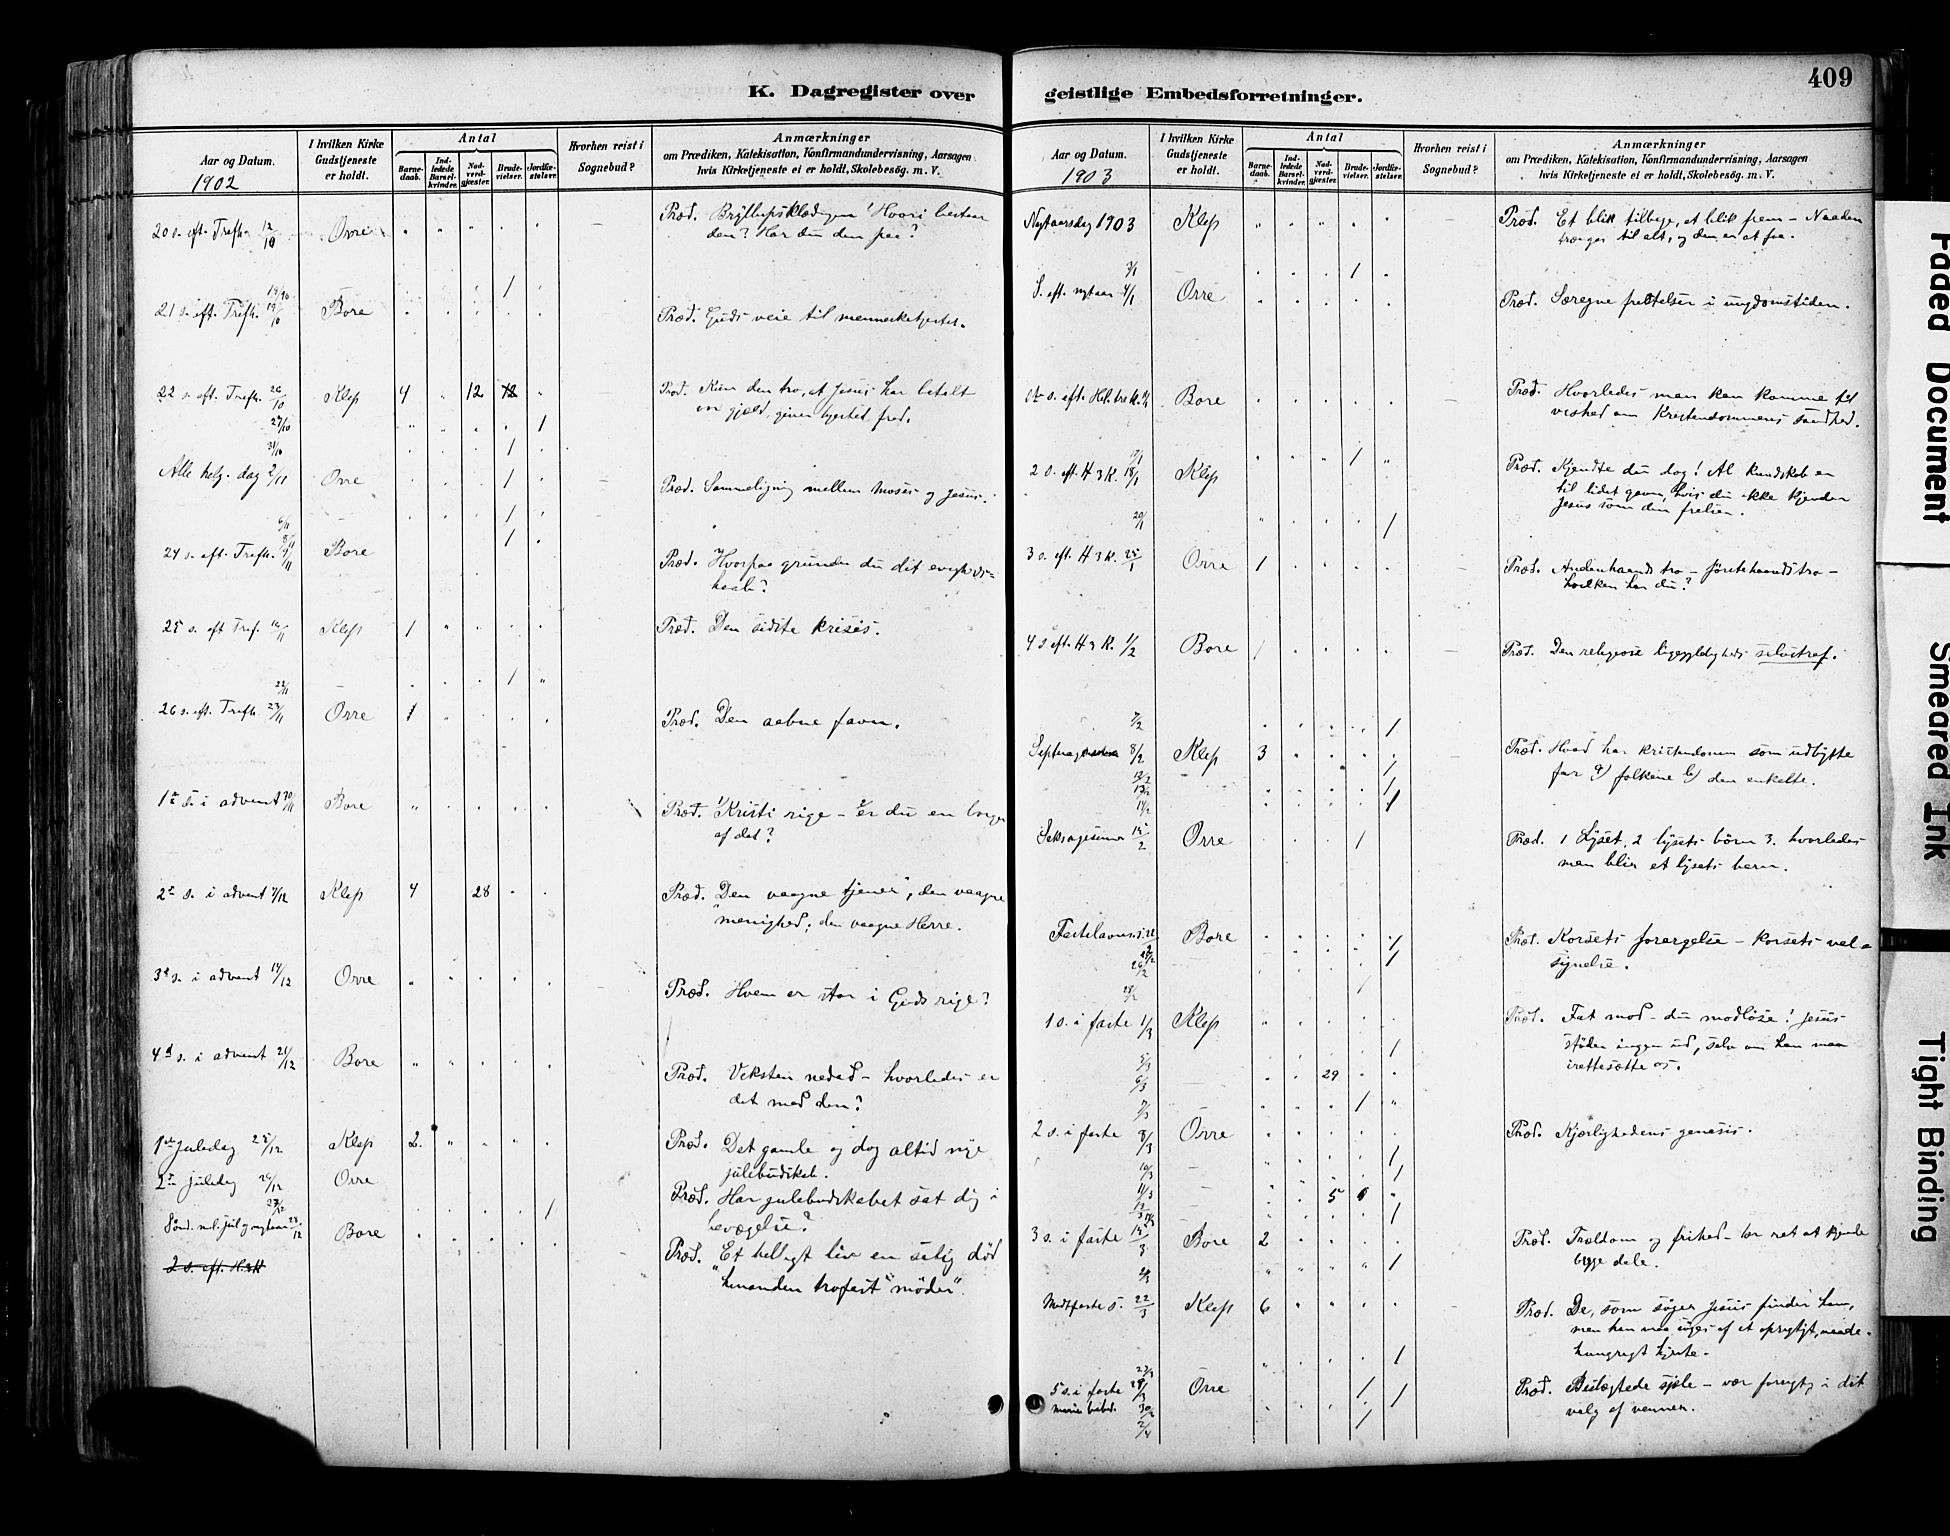 K. Dagregister over
Aar og Datum.
1902
I hvilken Kirke
Gudstjeneste
er holdt.
Antal
Barne-
daab.
Ind-
ledede
Barsel-
kvinder.
Nad-
verd-
gjæster.
Brude-
vielser.
Jordfæ-
stelser.
Hvorhen reist i
Sognebud?
Anmærkninger
om Prædiken, Katekisation, Konfirmandundervisning, Aarsagen
hvis Kirketjeneste ei er holdt, Skolebesøg. m. V.
20 s. eft. Trefh. 12/10 Orre Præd. Hvori bestaar
den? Har du den paa?
19/10 1
21 s. eft. Trefh. 19/10 Bore Præd. Guds veie til menneskehjertet.
22 s. eft. Trefh. 26/10 Klep 4 12 Præd. Kun den tro, at Jesus har betalt
vor gjæld, giver hjertet fred.
27/10 1
31/10 1
Alle helg. dag 2/11 Orre 1 Præd. Sammeligning mellem Moses og Jesus.
6/11 1
8/11 1
24 s. eft. Trefh. 9/11 Bore Præd. Hvorpaa grunder du dit evigheds=
haab?
25 s. eft Tref. 16/11 Klep 1 Præd. Den sidste krisis.
22/11 1
26 s. eft. Trefh. 23/11 Orre 1 Præd. Den aabne favn.
1ste s. i advent 30/11 Bore Præd. Kristi rige - er du en borger
af det?
2den s. i advent 7/12 Klep 4 28 Præd. Den vaagne tjener, den vaagne
menighed; den vaagne Herre.
3de s. i advent 14/12 Orre Præd. Hvem er stor i Guds rige?
4de s. i advent 21/12 Bore Præd. Veksten nedad - hvorledes er
det med den?
1ste Juledag 25/12 Klep 2. Præd. Det gamle og dog altid nye
julebudskab.
2den juledag 26/12 Orre Præd. Har julebudskabet sat dig i
bevægelse?
27/12 1
Sönd. ml. jul og nytaar 28/12 Bore Præd. Et helligt liv en salig död
2 s. eft. H3K
geistlige Embedsforretninger.
409
Aar og Datum.
1903
I hvilken Kirke
Gudstjeneste
er holdt.
Antal
Barne-
daab.
Ind-
ledede
Barsel-
kvinder.
Nad-
verd-
gjæster.
Brude-
vielser.
Jordfæ-
stelser.
Hvorhen reist i
Sognebud?
Anmærkninger
om Prædiken, Katekisation, Konfirmandundervisning, Aarsagen
hvis Kirketjeneste ei er holdt, Skolebesøg. m. V.
Nytaarsdag 1903 Klep Præd. Et blik tilbage, et blik frem - Naaden
trænges til alt, og den er at faa.
1
S. eft. nytaar 4/1 Orre Præd. Særegne fristelser i ungdomstiden.
Bore Præd. Hvorledes man kan komme til
vished om Kristendommens sandhed.
17/1 1
2 s. eft. H 3 K. 18/1 Klep Præd. Kjendte du dog! Al kundskab er
til lidet gavn, hvis du ikke kjender
Jesus som din frelser.
20/1 1
3 s. eft. H 3 K. 25/1 Orre 1 Præd. Andenhaands tro - förstehaandstro -
hvilken har du?
4 s eft. H 3 K. 1/2 Bore 1 Præd. Den religiøse ligegyldigheds selvstraf.
7/2 1
8/2 Klep 3 1 Præd. Hvad har kristendommen som udbytte
for a) folkene b) den enkelte.
12/2
13/2 1
14/2 1
15/2 Orre 1 Præd. 1 Lyset, 2 lysets börn 3. hvorledes
man blir et lysets barn.
Fastelavns s. 22/2 Bore 1 Præd. Korsets forargelse - korsets vel=
signelse.
1
26/2
28/2 1
1 s. i faste 1/3 Klep Præd. Fat mod - du modløse! Jesus
støder ingen ud, selv om han maa
irettesætte os.
5/3 1
6/3 29
7/3 1
2 s. i faste 8/3 Orre Præd. Kjærlighedens genesis.
1
10/3 1
11/3 5
1
3 s. i faste 15/3 Bore 2 Præd. Trældom og frihed - lær ret at kjende
begge dele.
1
Midtfaste s. 22/3 Klep 6 Præd. De, som søger Jesus finder ham,
men han maa søges af et oprigtigt, naade-
hungrigt hjerte.
1
5 s. i faste 29/3 Orre 1 1 Præd. Beslægtede sjæle - vær forsigtig i dit
valg af venner.
2/4 1
Faded Document
Smeared Ink
Tight Binding